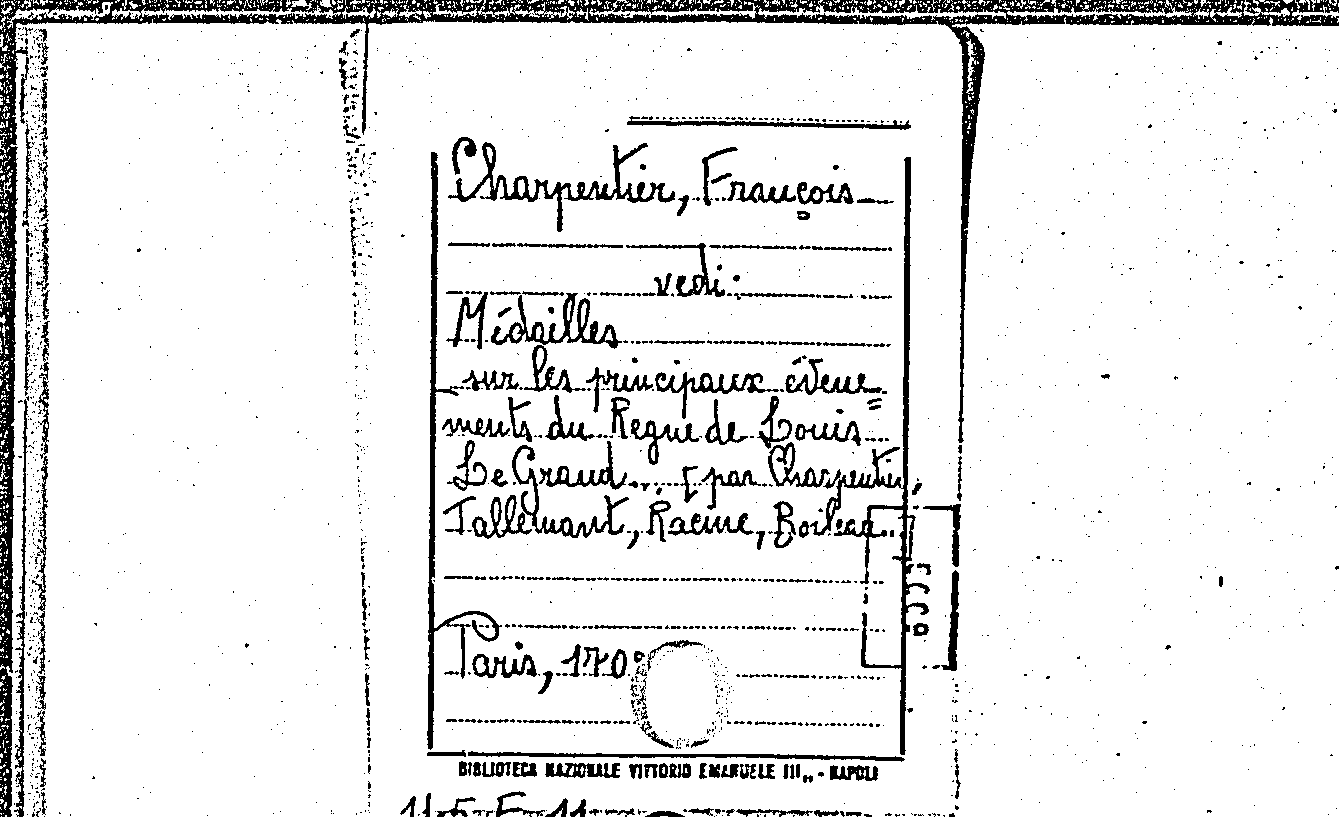 Charpentier, François
vedi:
Médailles
sur les principaux évene=
ments du Regne de Louis
Le Grand... [par Charpentier,
Tallemant, Racine, Boileau..
Paris, 170
BIBLIOTECA NAZIONALE VITTORIO EMANUELE III,, - NAPOLI